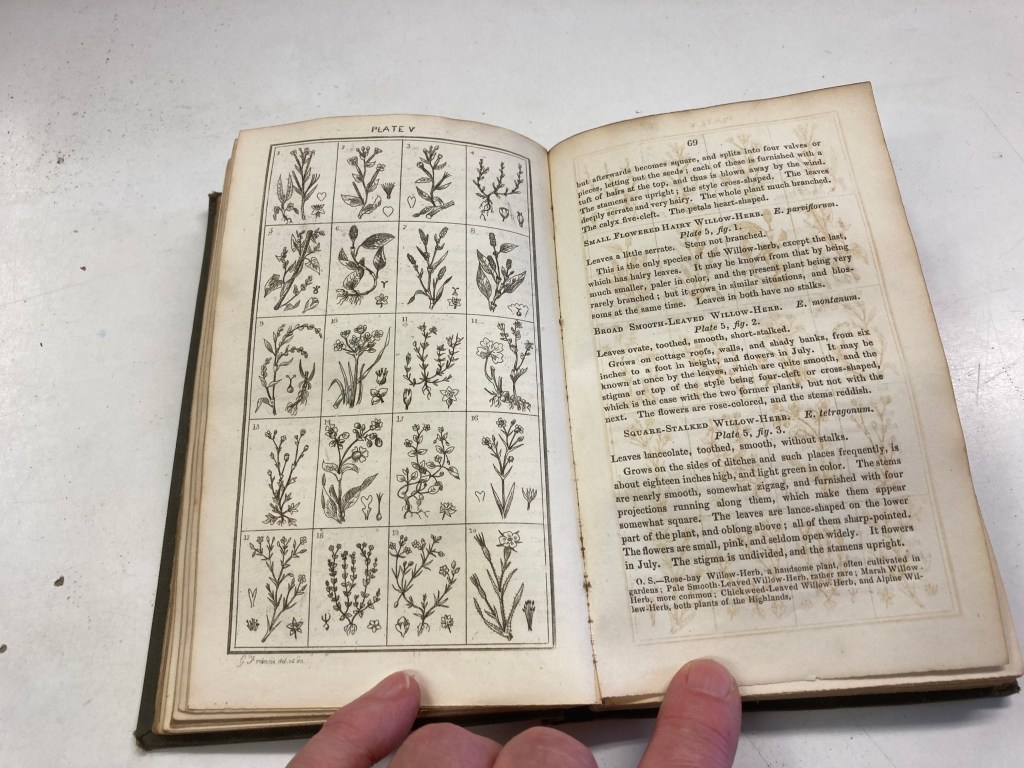 PLATE V
1 2 3 4
5 6 7 8
9 10 11 12
13 14 15 16
17 18 19 20
69
but afterwards becomes square, and splits into four valves or
pieces, letting out the seeds; each of these is furnished with a
tuft of hairs at the top, and thus is blown away by the wind.
The stamens are upright; the style cross-shaped. The leaves
deeply serrate and very hairy. The whole plant much branched.
The calyx five-cleft. The petals heart-shaped.
SMALL FLOWERED HAIRY WILLOW-HERB. E. parviflorum.
Plate 5, fig. 1.
Leaves a little serrate. Stem not branched.
This is the only species of the Willow-herb, except the last,
which has hairy leaves. It may be known from that by being
much smaller, paler in color, and the present plant being very
rarely branched; but it grows in similar situations, and blos-
soms at the same time. Leaves in both have no stalks.
BROAD SMOOTH-LEAVED WILLOW-HERB. E. montanum.
Plate 5, fig. 2.
Leaves ovate, toothed, smooth, short-stalked.
Grows on cottage roofs, walls, and shady banks, from six
inches to a foot in height, and flowers in July. It may be
known at once by the leaves, which are quite smooth, and the
stigma or top of the style being four-cleft or cross-shaped,
which is the case with the two former plants, but not with the
next. The flowers are rose-colored, and the stems reddish.
SQUARE-STALKED WILLOW-HERB. E. tetragonum.
Plate 5, fig. 3.
Leaves lanceolate, toothed, smooth, without stalks.
Grows on the sides of ditches and such places frequently, is
about eighteen inches high, and light green in color. The stems
are nearly smooth, somewhat zigzag, and furnished with four
projections running along them, which make them appear
somewhat square. The leaves are lance-shaped on the lower
part of the plant, and oblong above; all of them sharp-pointed.
The flowers are small, pink, and seldom open widely. It flowers
in July. The stigma is undivided, and the stamens upright.
O. S.—Rose-bay Willow-Herb, a handsome plant, often cultivated in
gardens; Pale Smooth-Leaved Willow-Herb, rather rare; Marsh Willow-
Herb, more common; Chickweed-Leaved Willow-Herb, and Alpine Wil-
lew-Herb, both plants of the Highlands.